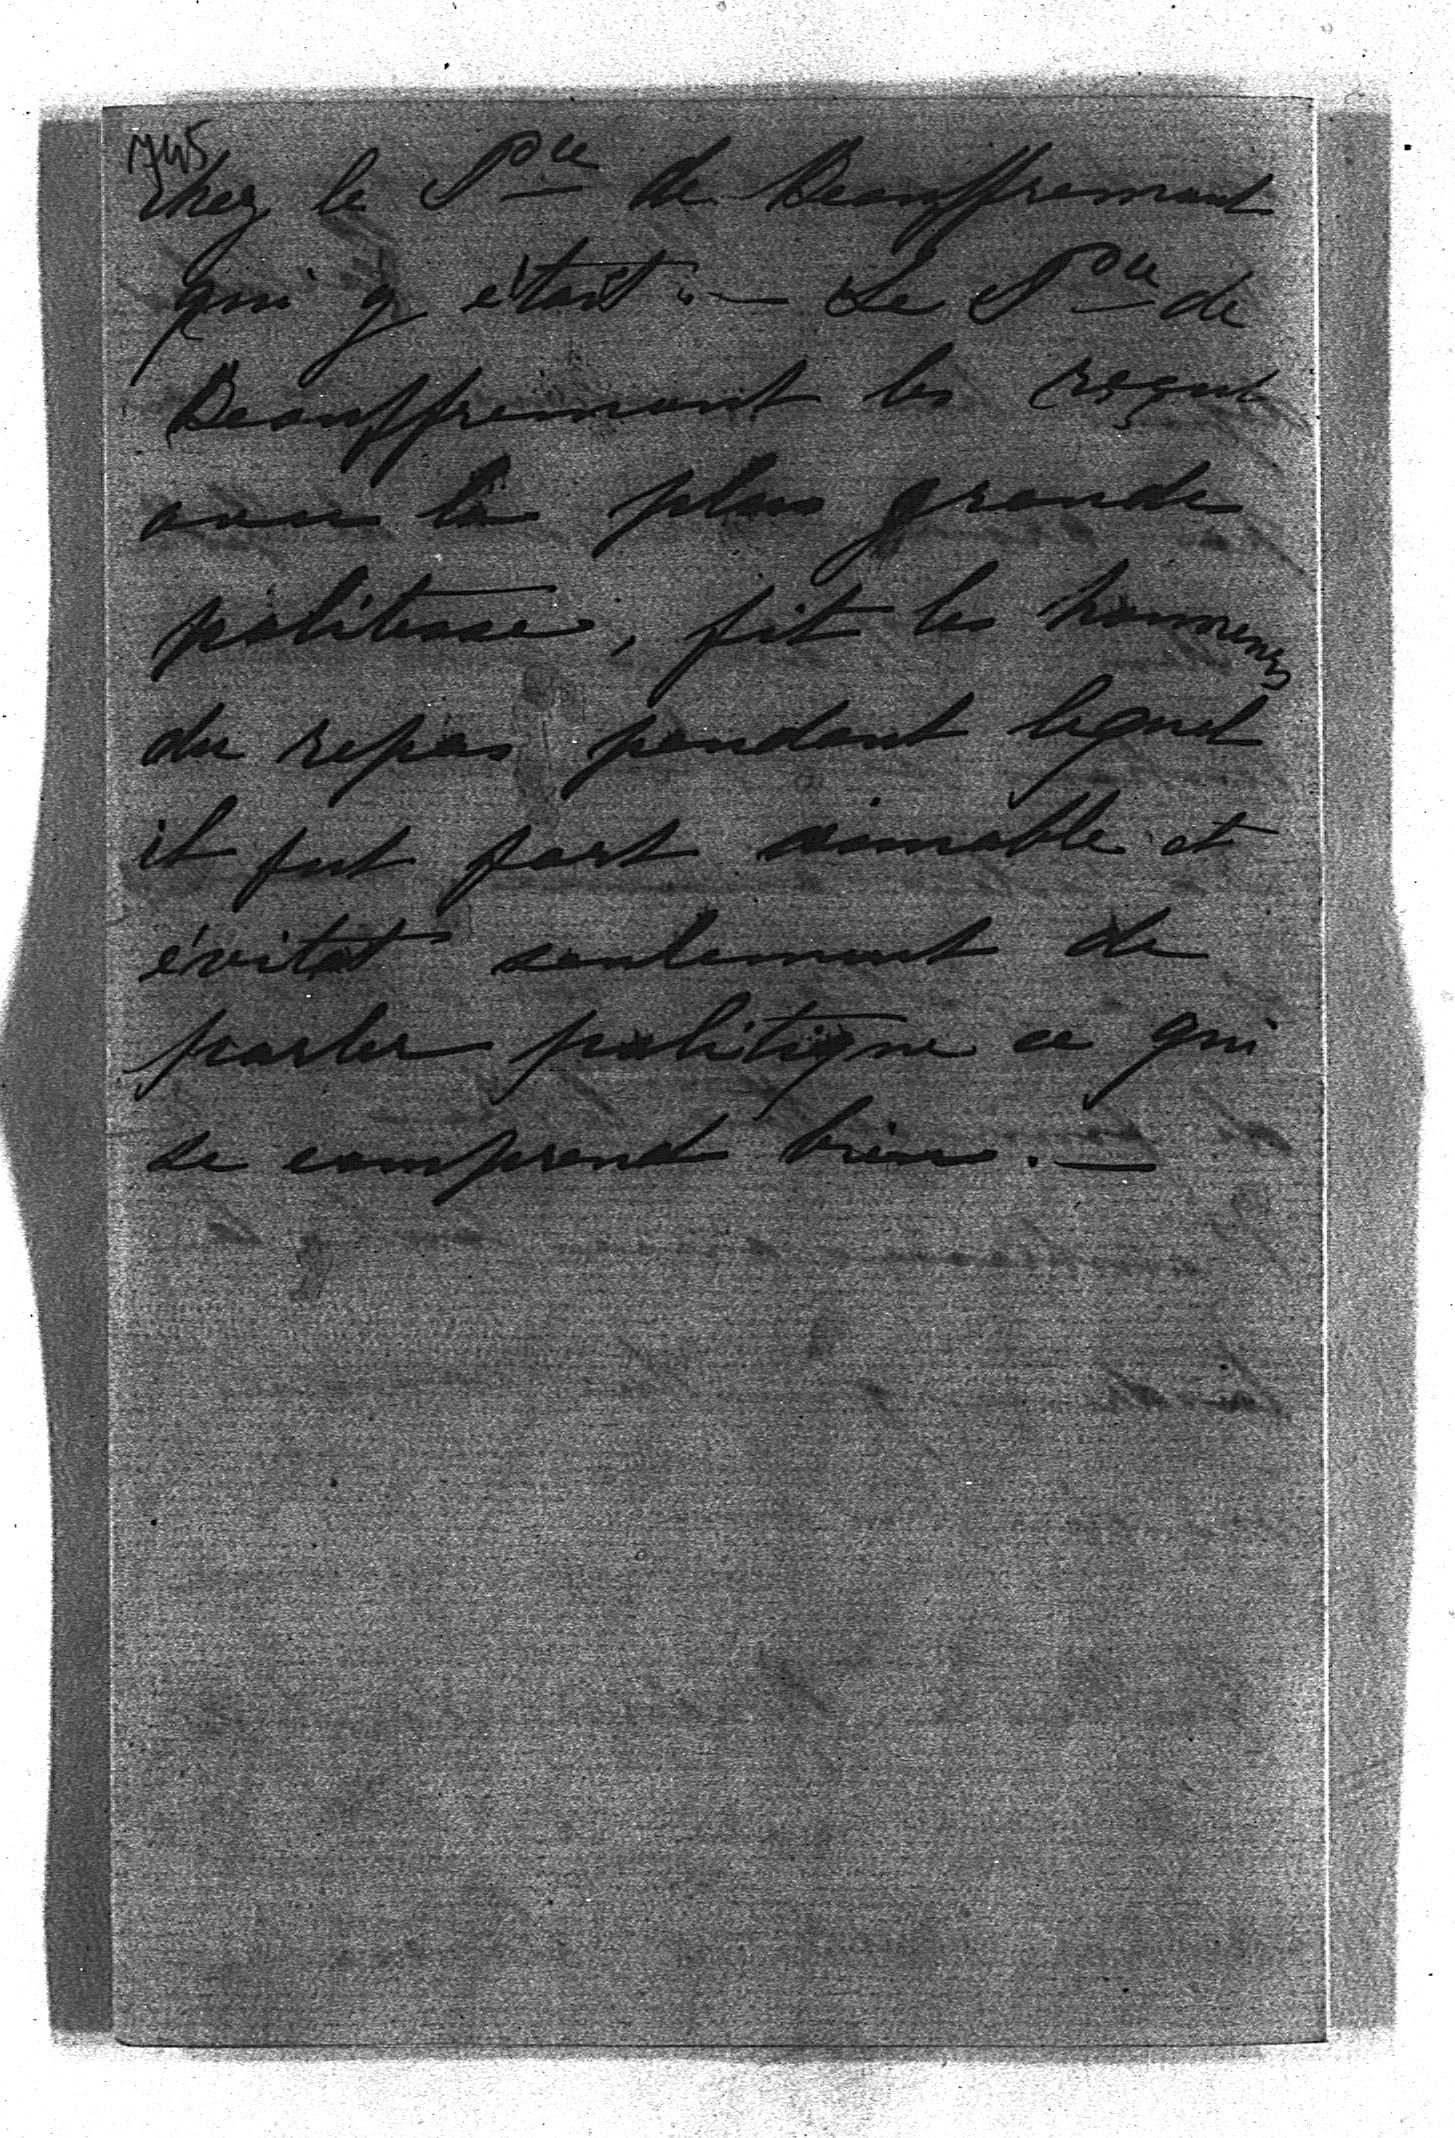 1745
chez le Pce de Beauffremont
qui y était. — Le Pce de
Beauffremont les reçut
avec la plus grande
politesse, fit les honneurs
du repas pendant lequel
il fut fort aimable et
évitat seulement de
parler politique ce qui
se comprend bien. —